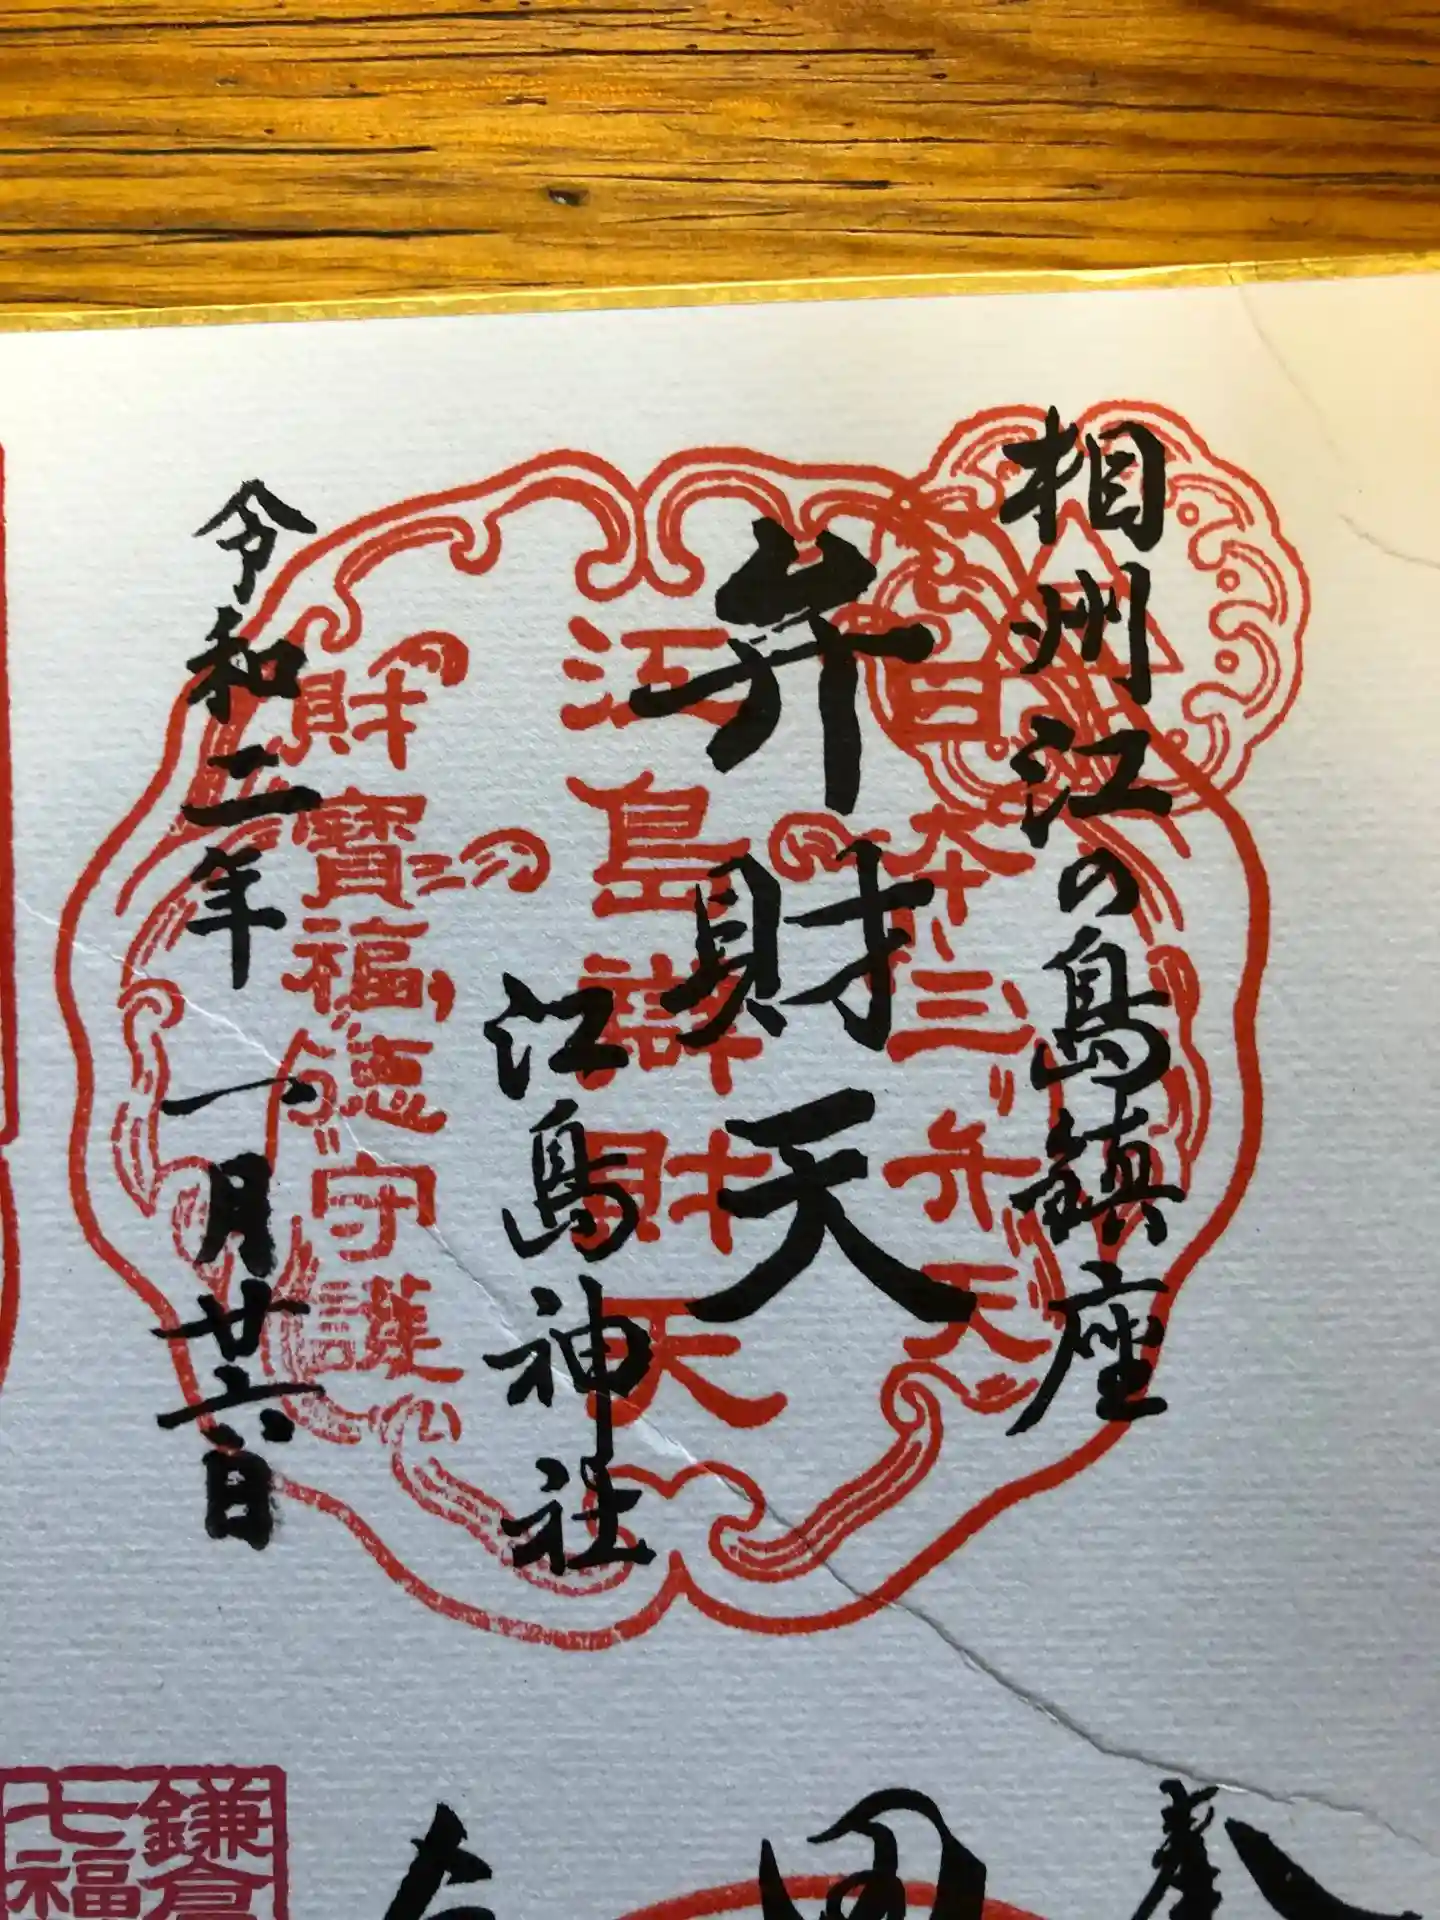 相州江の島鎮座
弁財天
江島神社
令和二年 一月廿六日
日本三弁天
江島辯財天
財寶福徳守護
奉
鎌倉
七福